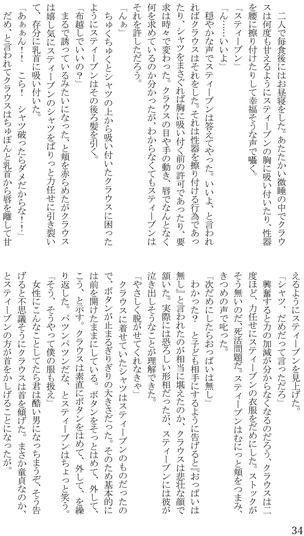 二人で毎食後にはお昼寝をした。あたたかい微睡の中でクラウ
スは何度も甘えるようにスティーブンの胸に吸い付いたり、性器
を腰に擦り付けたりして幸福そうな声で囁く。
「スティーブン」
「ん……いいよ」
穏やかな声でスティーブンは答えてやった。いいよ、と言われ
ればクラウスはそれをした。それは性器を擦り付ける行為であっ
たり、シャツをまさぐれば胸に吸い付く前の許可であったり、要
求は時々で変わった。クラウスの目や手の動き、唇でなんとなく
何を求めているのか分かったが、わからなくてもスティーブンは
それを許しただろう。
「んぁ」
ちゅくちゅくとシャツの上から吸い付いたクラウスに困った
ようにスティーブンはその後ろ髪を引く。
「布越しでいいの?」
まるで誘っているみたいになった、と頬を赤らめたがクラウス
は嬉し気にスティーブンのシャツをばりっと力任せに引き裂い
て、存分に乳首に吸い付いた。
「あぁぁん!! こら! シャツ破ったらダメだからな!!」
だめ、と言われてクラウスはちゅぽんと乳首から唇を離して甘
えるようにスティーブンを見上げた。
「シャツ、だめだって言っただろ」
興奮すると力の加減が分からなくなるのだろう、クラウスは二
度ほど、力任せにスティーブンの衣服をだめにした。ストックが
そう無いのだ、死活問題だ。スティーブンはむにっと頬をつまみ、
きつめの声で叱った。
「次だめにしたらおっぱいは無し」
わかったか、と子ども相手にするように告げると『おっぱいは
無し』と言われたのが相当に堪えたのか、クラウスは悲壮な顔で
頷いた。実際には恐ろしい形相だったが、スティーブンには彼が
泣き出しそうなことが理解できた。
「やさしく脱がせてくれなきゃ」
クラウスに着せていたシャツはスティーブンのものだったの
で、ボタンが止まるぎりぎりの大きさだった。そのため基本的に
は前を開けたままにしている。ボタンをそっとはめて、外して、
こう、と示す。クラウスは素直にボタンをはめて、外して、を繰
り返した。パツンパツンだな、とスティーブンはちょっと笑う。
「そう、そうやって僕の服も扱え」
女性にこんなことしてたら君は酷い男になっちまうぞ、そう告
げると不思議そうにクラウスは首を傾げた。まさか童貞なのか、
とスティーブンの方が首をかしげることになったが、
34